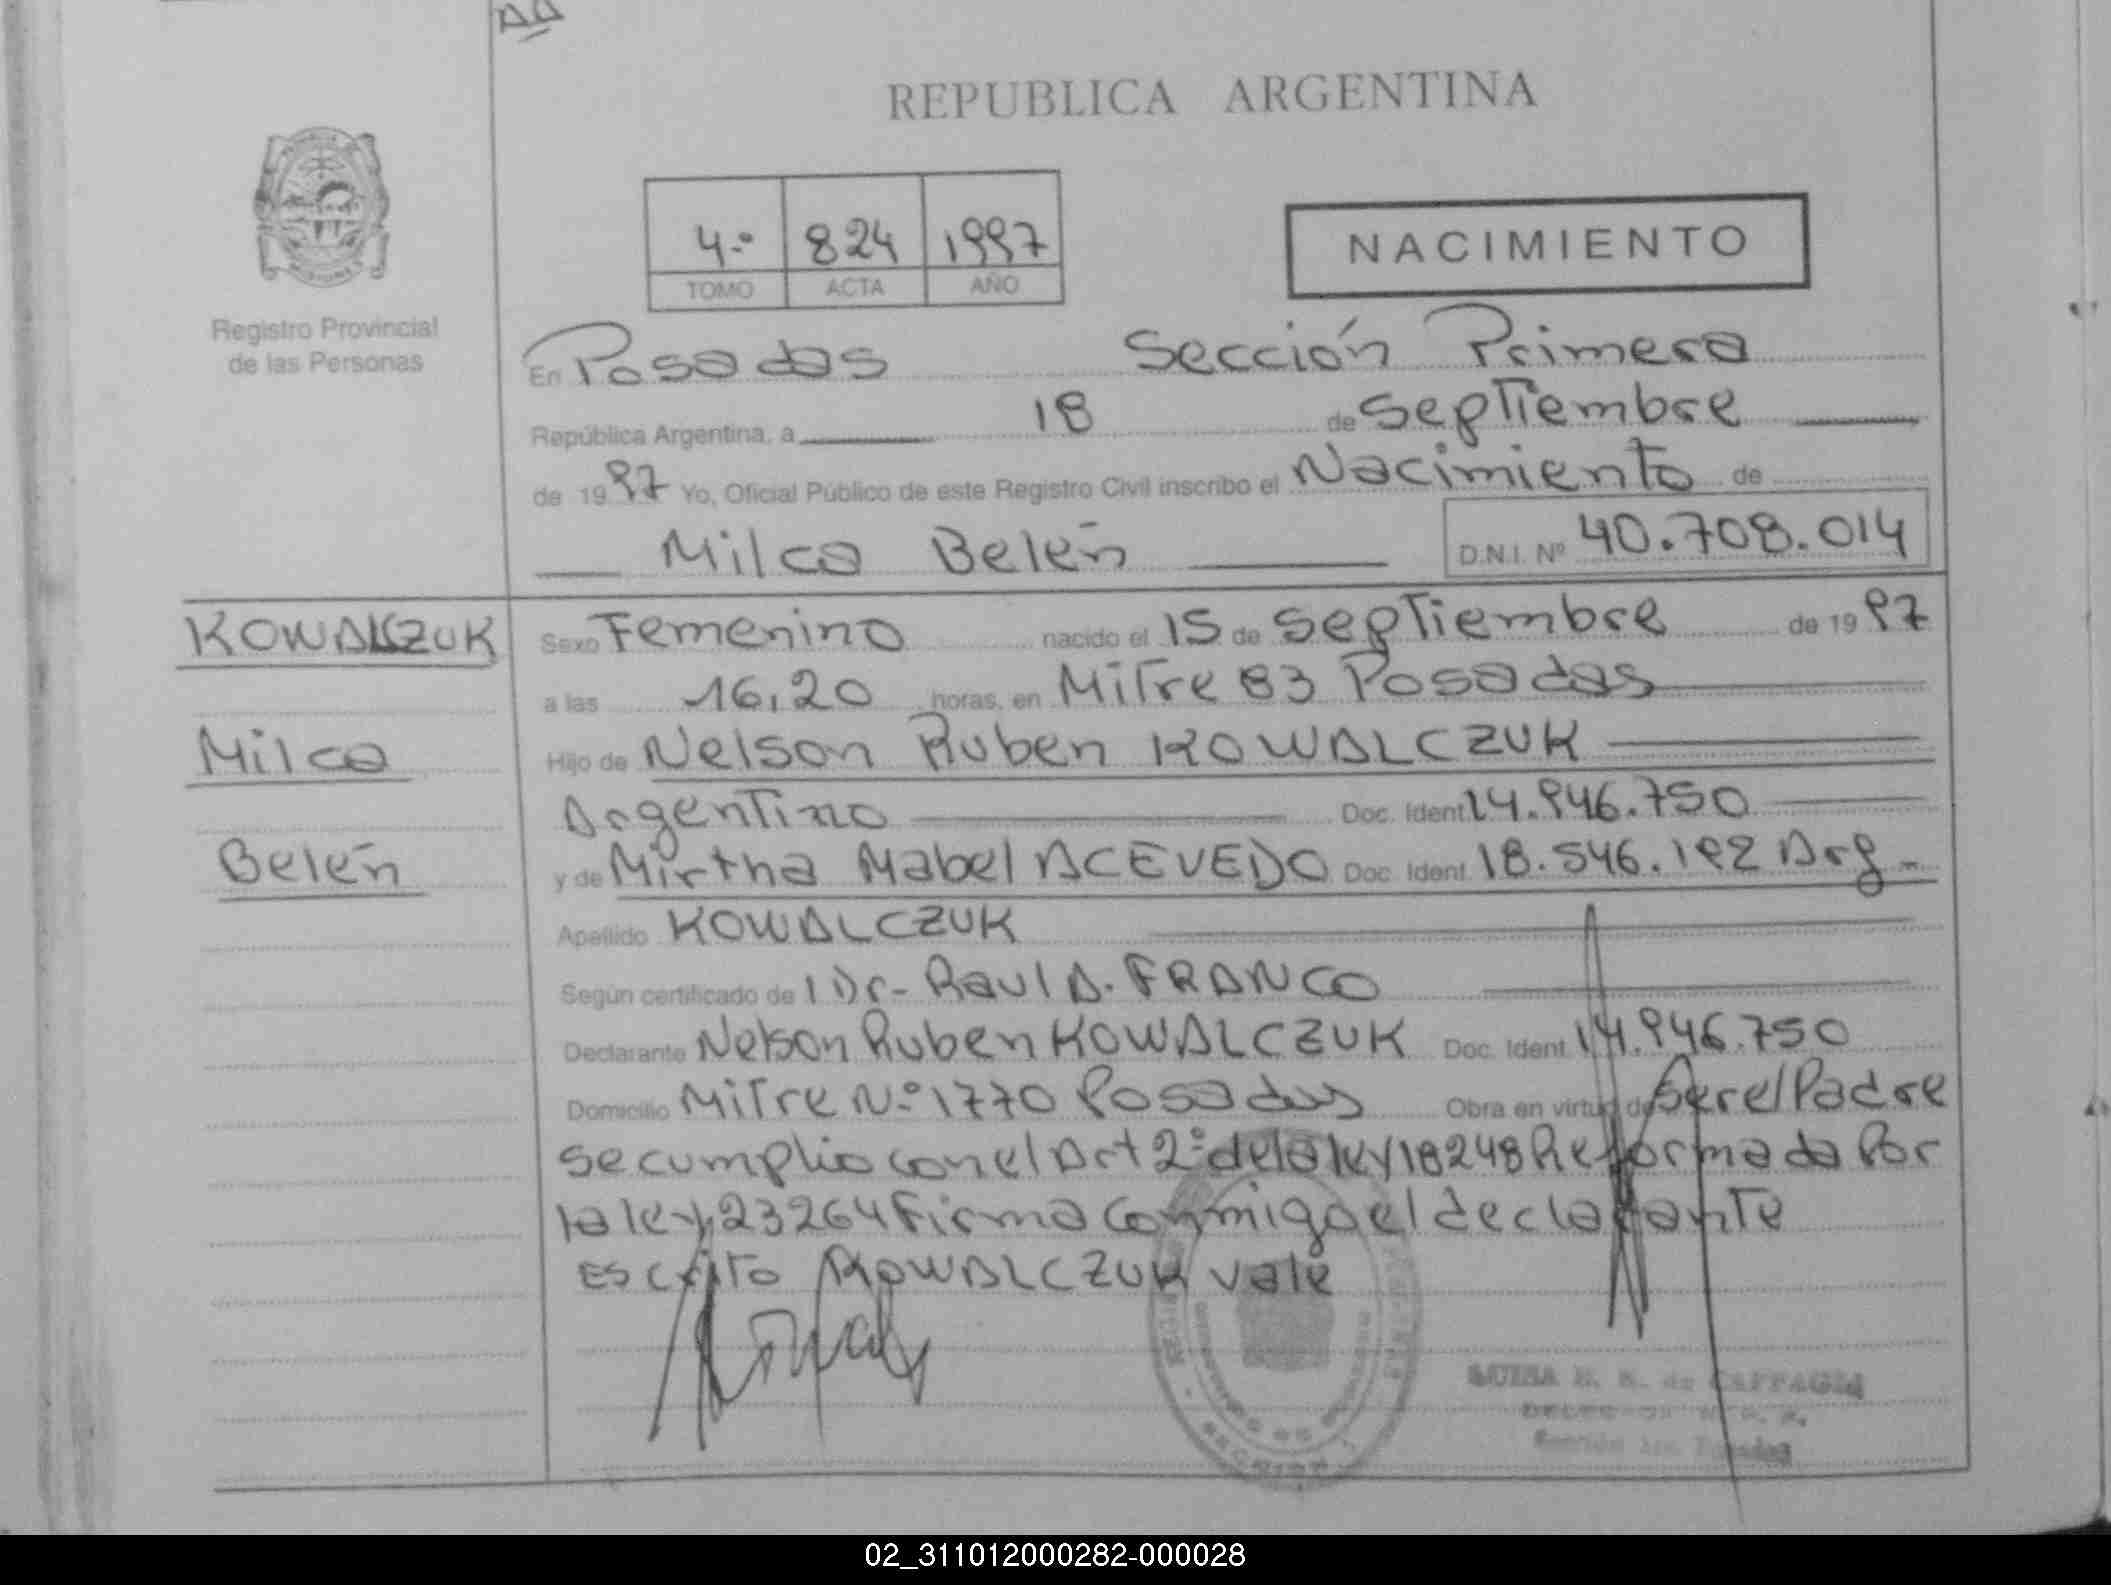 REPUBLICA ARGENTINA
4.º 824 1997
TOMO ACTA AÑO
NACIMIENTO
Registro Provincial
de las Personas
En Posadas Sección Primera
República Argentina, a 18 de Septiembre
de 1997 Yo, Oficial Público de este Registro Civil inscribo el Nacimiento de
Milca Belén D.N.I. Nº 40.708.014
KOWALCZUK
Milca
Belén
Sexo Femenino nacido el 15 de Septiembre de 1997
a las 16,20 horas, en Mitre 83 Posadas
Hijo de Nelson Ruben KOWALCZUK
Argentino Doc. Ident 14.946.750
y de Mirtha Mabel ACEVEDO Doc. Ident 18.546.192 Arg.-
Apellido KOWALCZUK
Según certificado de Dr- Raul A. FRANCO
Declarante Nelson Ruben KOWALCZUK Doc. Ident 14.946.750
Domicilio Mitre N.º 1770 Posadas Obra en virtud de Ser el Padre
se cumplio con el Art 2º de la ley 18248 Reformada Por
la ley 23264 Firma Conmigo el declarante
Escrito KOWALCZUK vale
de CAFFAGNI
02_311012000282-000028